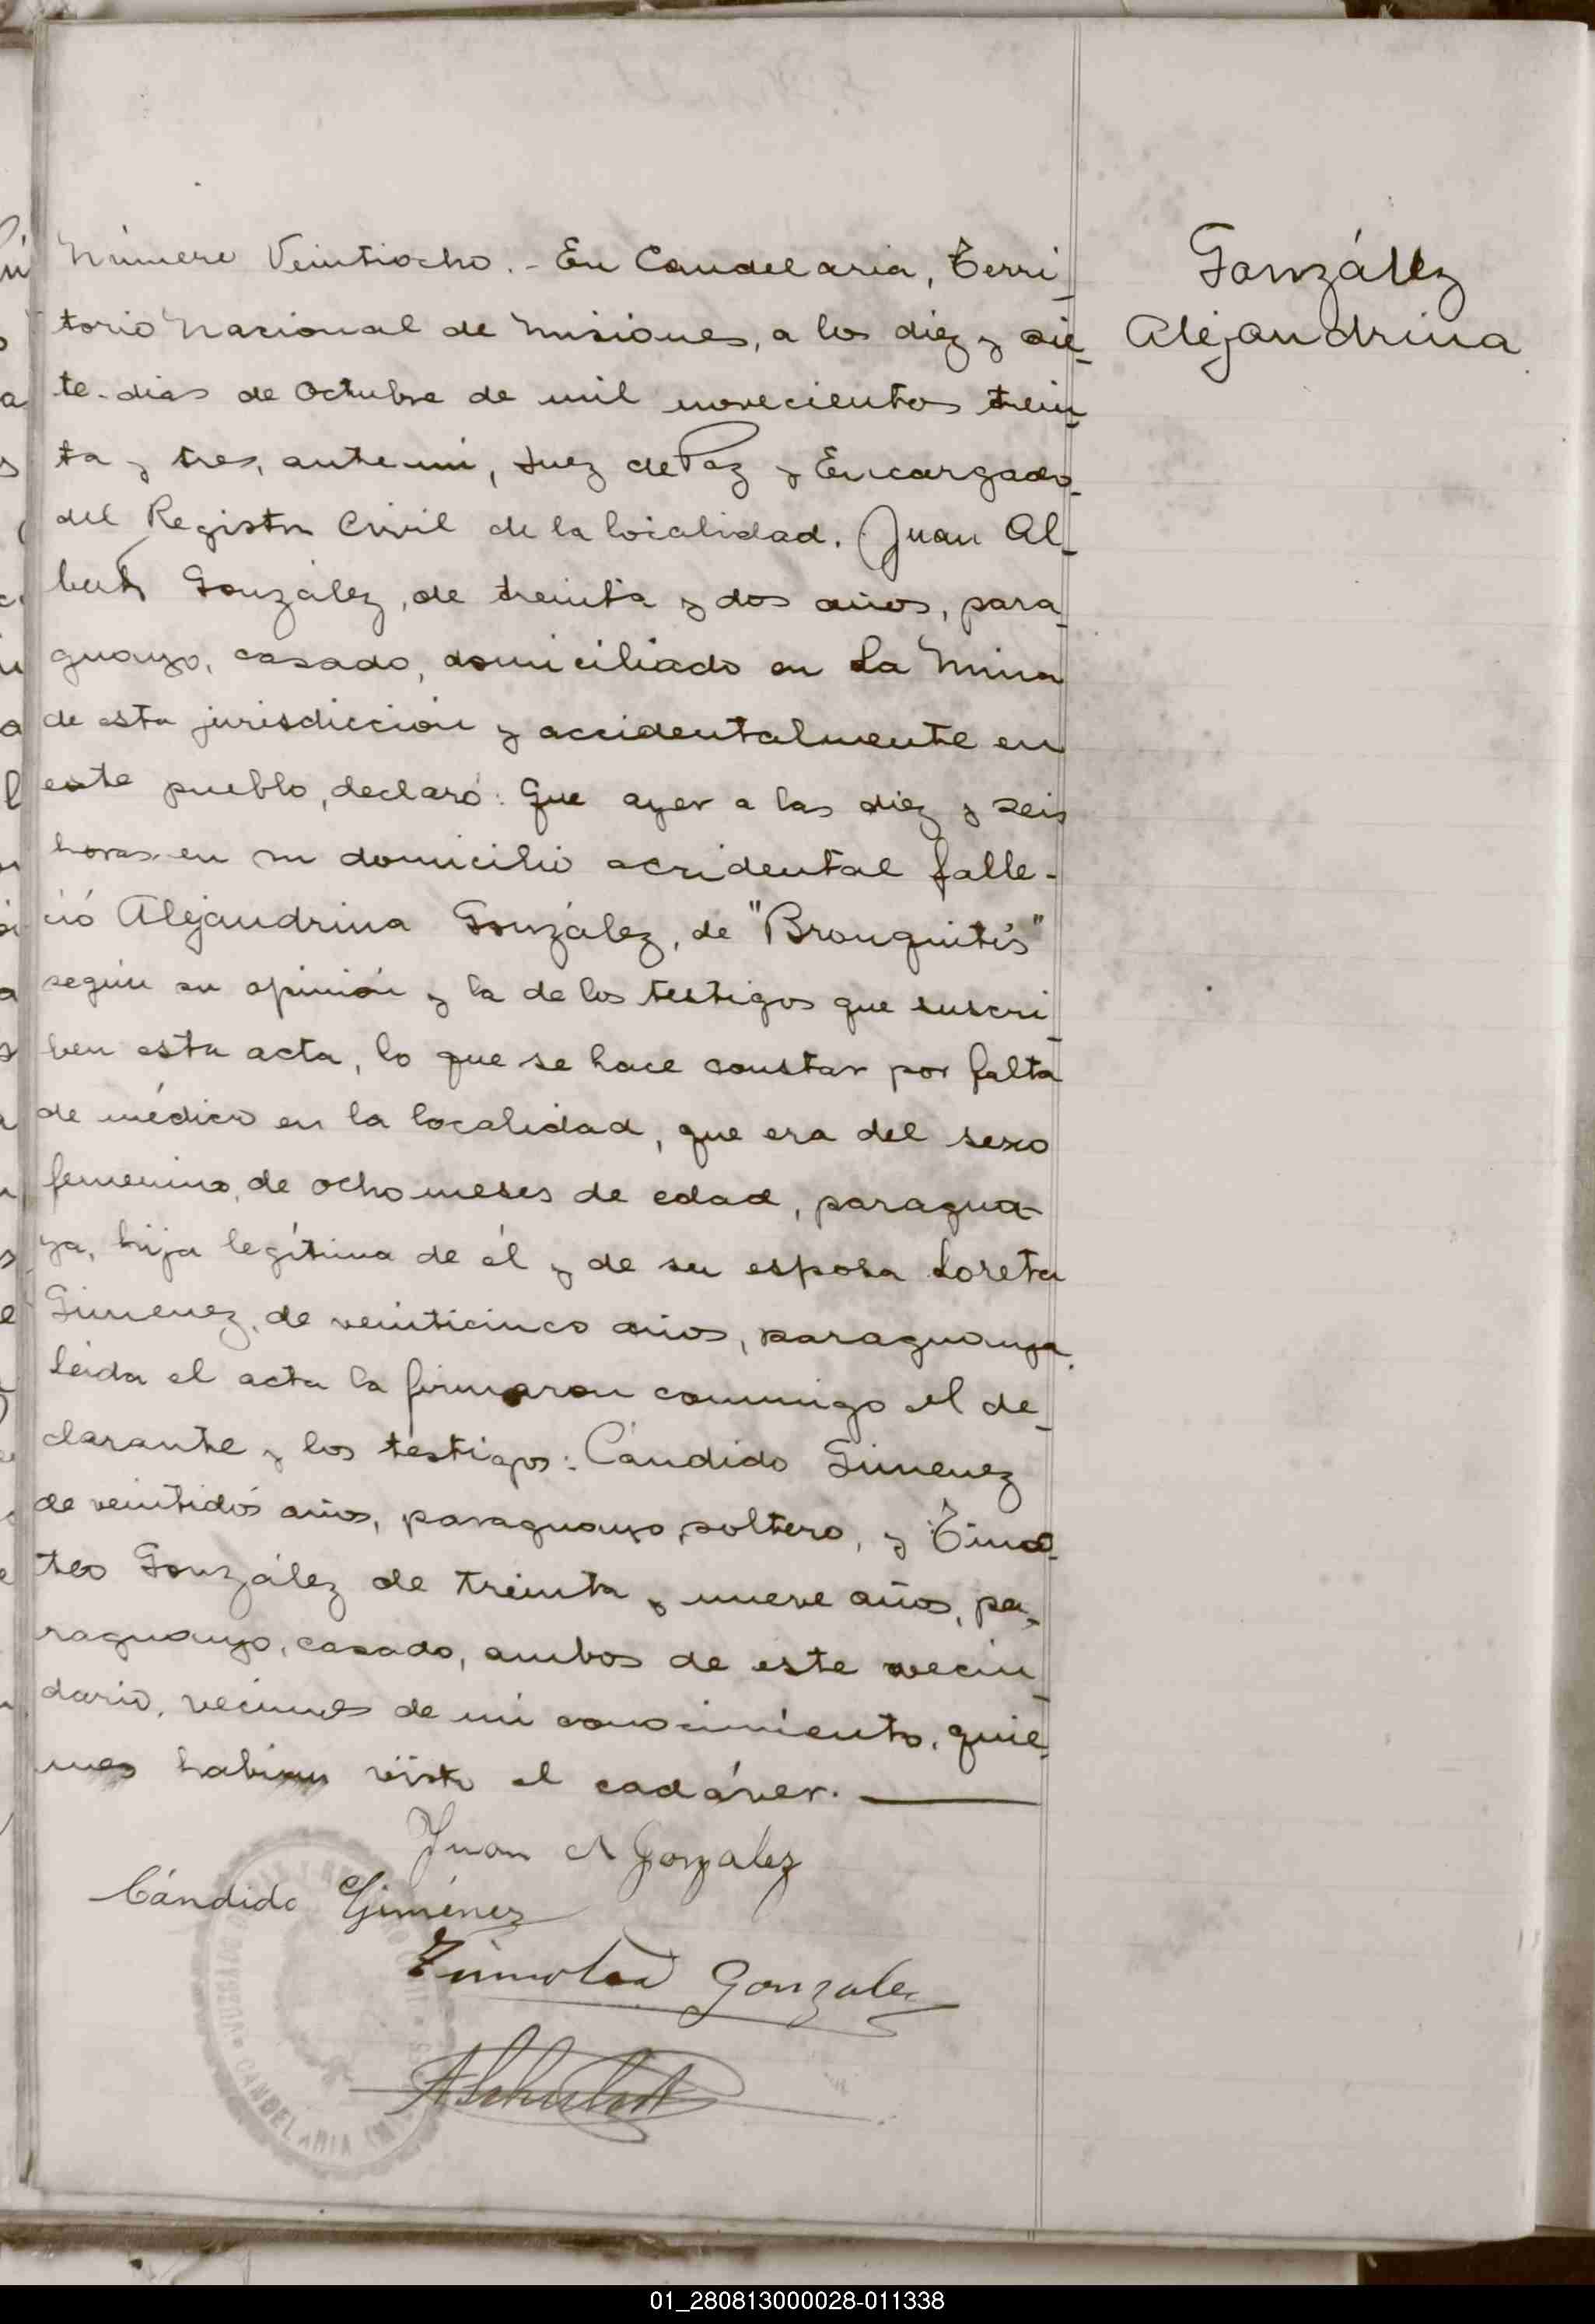 González
Alejandrina
Número Veintiocho. - En Candelaria, Terri-
torio Nacional de Misiones, a los diez y sie-
te dias de Octubre de mil novecientos trein-
ta y tres, ante mi, Juez de Paz y Encargado
del Registro Civil de la localidad. Juan Al-
berto González, de treinta y dos años, para-
guayo, casado, domiciliado en La Mina
de esta jurisdicción y accidentalmente en
este pueblo, declaró: Que ayer a las diez y seis
horas en su domicilio accidental falle-
ció Alejandrina González, de "Bronquitis"
según su opinión y la de los testigos que suscri-
ben esta acta, lo que se hace constar por falta
de médico en la localidad, que era del sexo
femenino, de ocho meses de edad, paragua-
ya, hija legítima de él y de su esposa Loreta
Gimenez, de veinticinco años, paraguaya.
Leida el acta la firmaron conmigo el de-
clarante y los testigos: Cándido Gimenez
de veintidós años, paraguayo, soltero, y Timo-
teo González de treinta y nueve años, pa-
raguayo, casado, ambos de este vecin-
dario, vecinos de mi conocimiento, quie-
nes habian visto el cadáver.
Juan A Gonzalez
Cándido Giménez
Timoteo Gonzalez
CANDELARIA
01_280813000028-011338